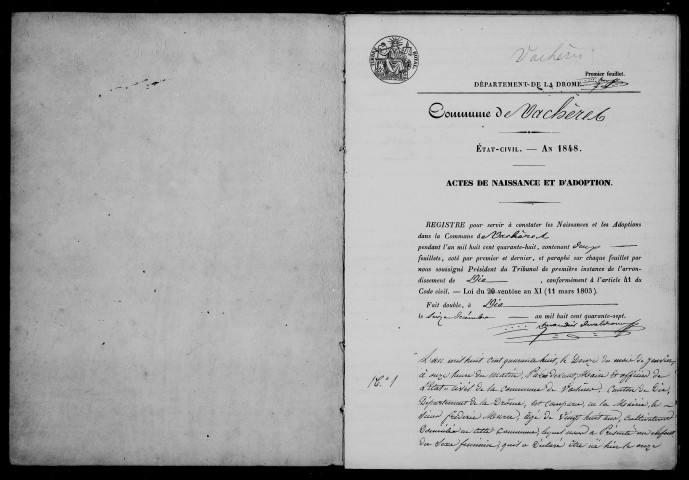 Vachères
Premier feuillet.
DÉPARTEMENT DE LA DROME
Commune de Vachères
ÉTAT-CIVIL. — AN 1848.
ACTES DE NAISSANCE ET D'ADOPTION.
REGISTRE pour servir à constater les Naissances et les Adoptions
dans la Commune de Vachères
pendant l'an mil huit cent quarante-huit, contenant deux
feuillets, coté par premier et dernier, et paraphé sur chaque feuillet par
nous soussigné Président du Tribunal de première instance de l'arron-
dissement de Die, conformément à l'article 41 du
Code civil. — Loi du 20 ventôse an XI (11 mars 1803)
Fait double, à Die
le seize Décembre an mil huit cent quarante-sept.
L'an mil huit cent quarante huit, le Douze du mois de janvier
à onze heure du matin, Par devant, Maire et officier de
N.o 1
l'Etat civil de la commune de Vachères, Canton de Die,
Département de la Drôme, est comparu, en la Mairie, le
sieur fréderic agé de Vingt huit ans, Cultivateur
Domicilié en cette Commune, lequel nous a Présenté un enfant
du Sexe féminin, qu'il a Déclaré être né hier le onze